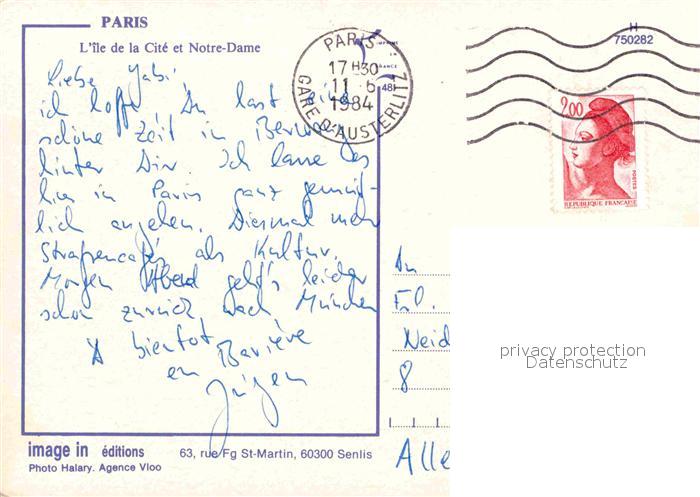 PARIS
L'île de la Cité et Notre-Dame
Liebe Gabi
ich hoffe Du hast eine
schöne Zeit in
hinter Dir. Ich lasse es
hier in Paris ganz gemüt-
lich angehen. Diesmal mehr
Strassencafés als Kultur.
Morgen Abend geht's leider
schon zurück nach München
A bientot
en Bavière
Jürgen
image in éditions
63, rue Fg St-Martin, 60300 Senlis
Photo Halary. Agence Vloo
PARIS
17 H 30
11 6
1984
GARE D'AUSTERLITZ
H
750282
2,00
POSTES
REPUBLIQUE FRANÇAISE
An
Frl.
Neid
8
Alle
privacy protection
Datenschutz